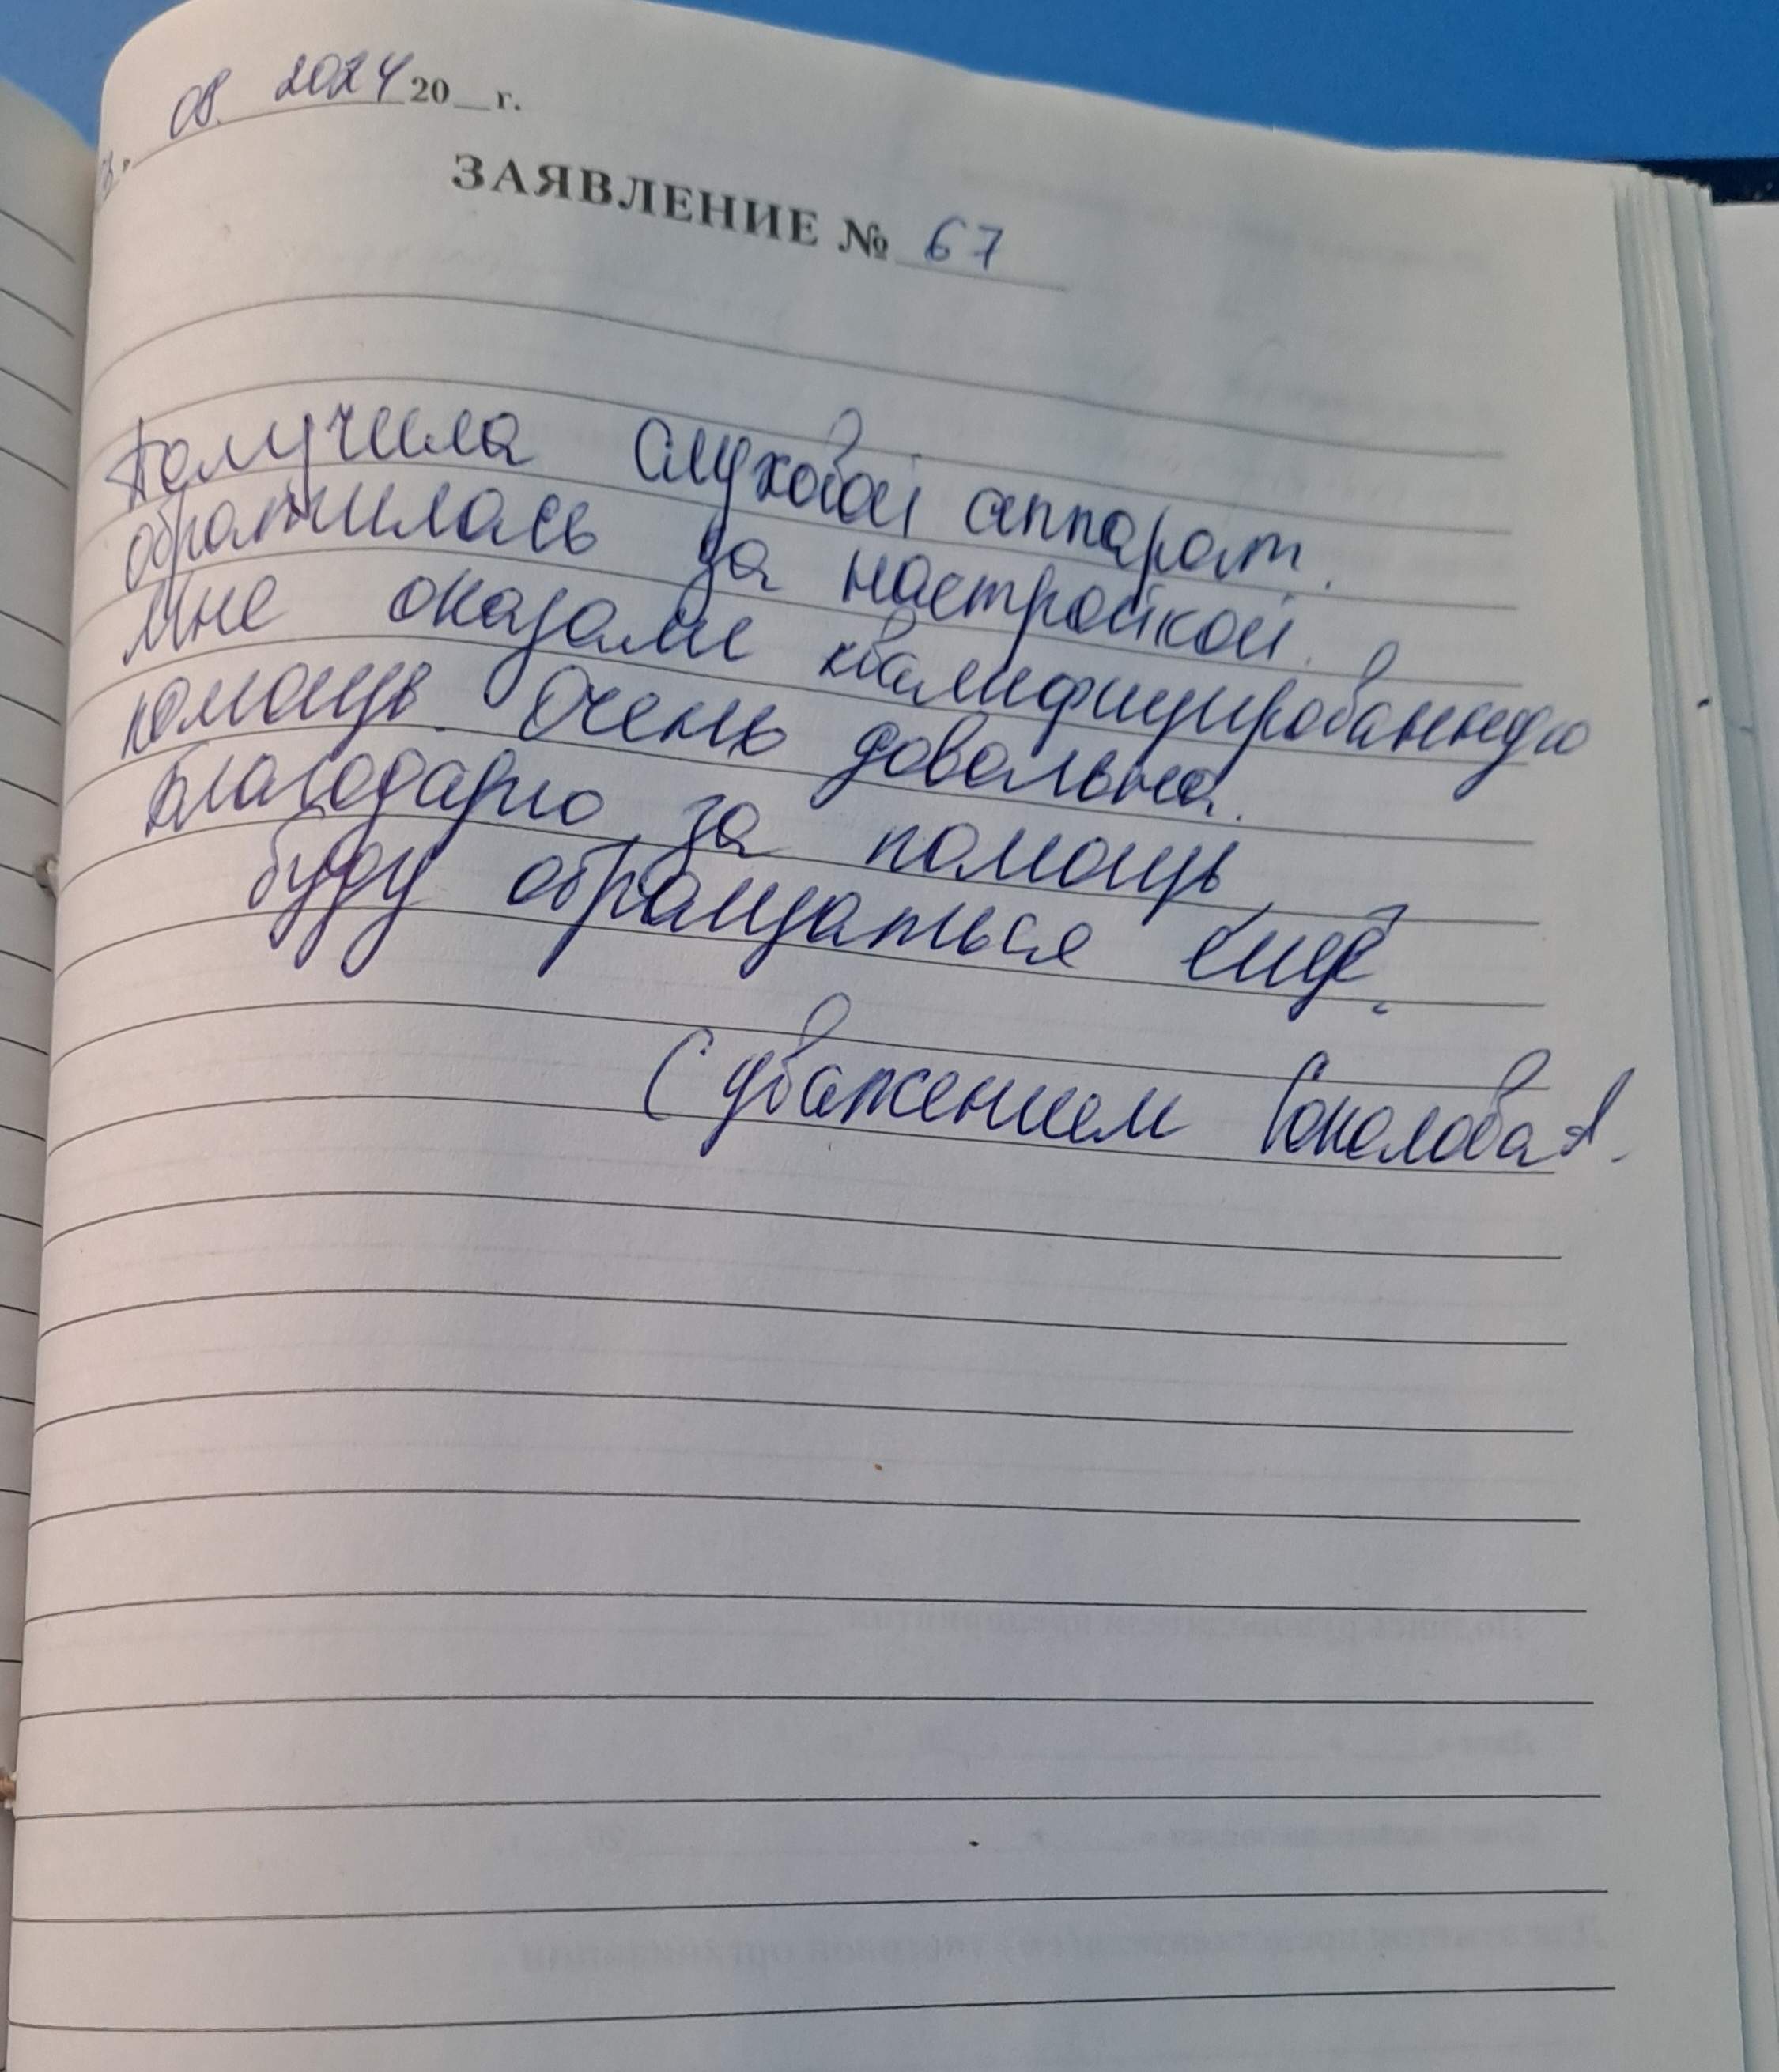 08. 2024 20__г.
ЗАЯВЛЕНИЕ № 67
Получила слуховой аппарат.
обратилась за настройкой.
Мне оказали квалифицированную
помощь. Очень довольна.
Благодарю за помощь,
буду обращаться ещё.
С уважением Соколова А.